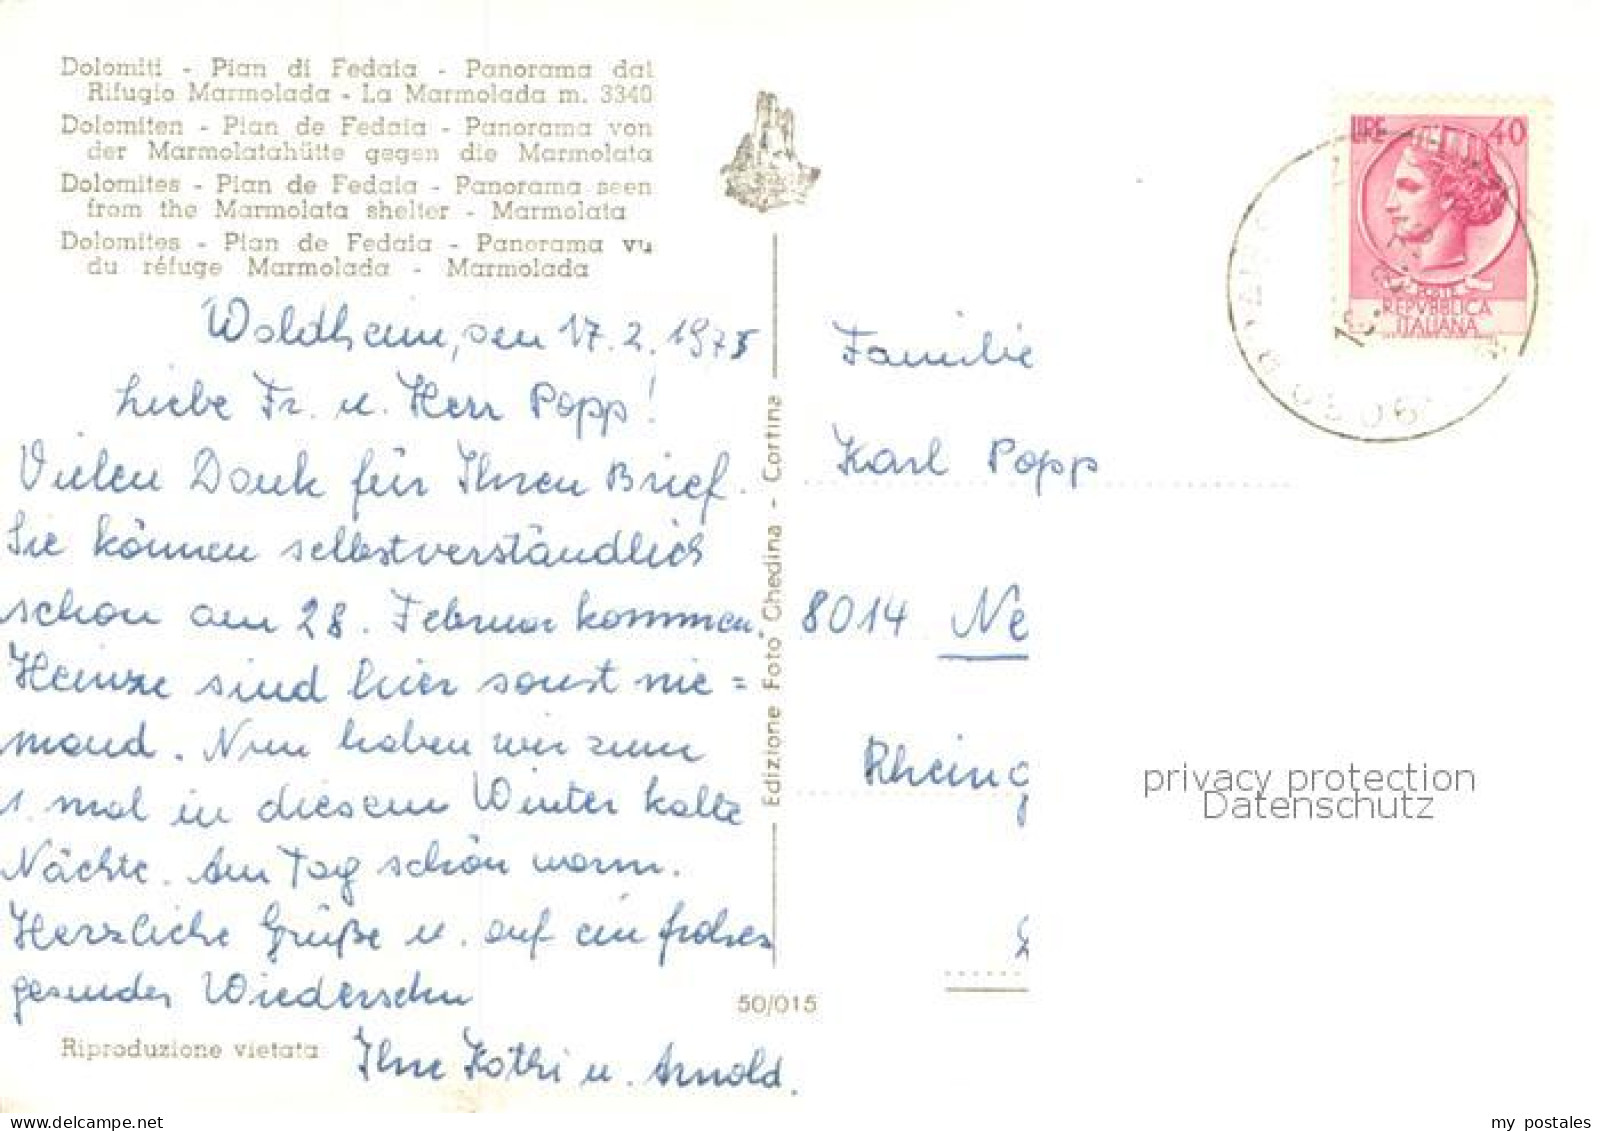 Dolomiti - Pian di Fedaia - Panorama dal
Rifugio Marmolada - La Marmolada m. 3340
Dolomiten - Pian de Fedaia - Panorama von
der Marmolatahütte gegen die Marmolata
Dolomites - Pian de Fedaia - Panorama seen
from the Marmolata shelter - Marmolata
Dolomites - Pian de Fedaia - Panorama vu
du réfuge Marmolada - Marmolada
Waldheim, den 17.2.1975
Liebe Fr. u. Herr Popp!
Vielen Dank für Ihren Brief.
Sie können selbstverständlich
schon am 28. Februar kommen.
Heinze sind hier sonst nie=
mand. Nun haben wir zum
1. mal in diesem Winter kalte
Nächte. Am Tag schön warm.
Herzliche Grüße u. auf ein frohes
gesundes Wiedersehn
Ihre Kathi u. Arnold.
Riproduzione vietata
50/015
Edizione Foto Ghedina - Cortina
LIRE 40
POSTE
REPVBBLICA
ITALIANA
Familie
Karl Popp
8014 Ne
Rheing
privacy protection
Datenschutz
my postales